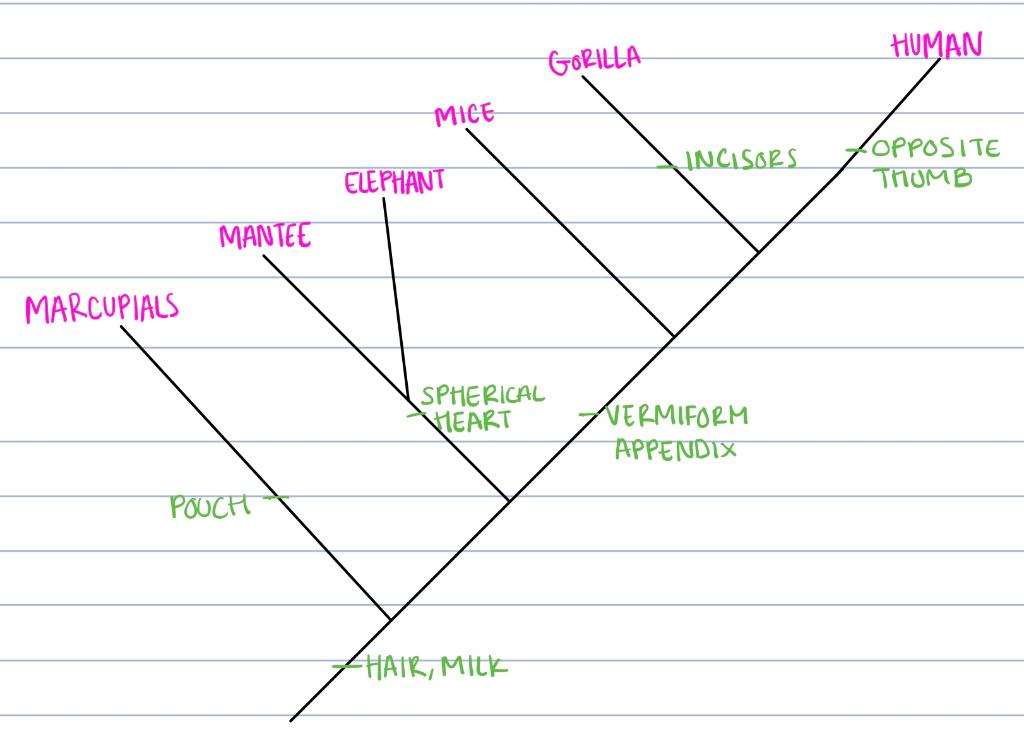 HUMAN
GORILLA
MICE
OPPOSITE
THUMB
INCISORS
ELEPHANT
MANTEE
MARCUPIALS
SPHERICAL
HEART
VERMIFORM
APPENDIX
POUCH
HAIR, MILK